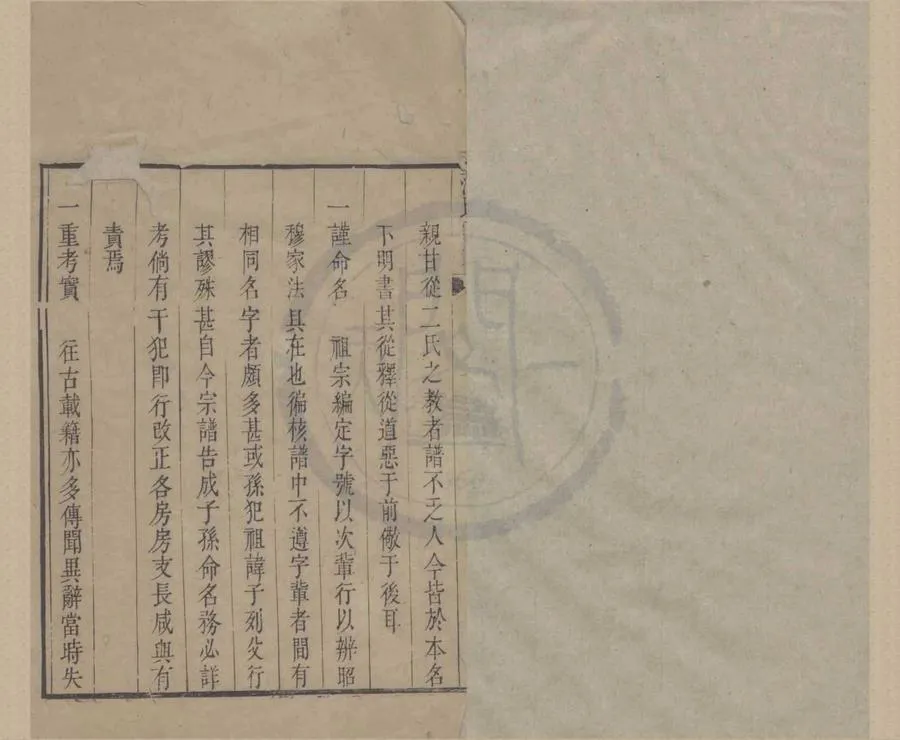 親甘從二氏之教者譜不乏人今皆於本名
下明書其從釋從道惡于前儆于後耳
一謹命名　祖宗編定字號以次輩行以辨昭
穆家法具在也徧核譜中不遵字輩者間有
相同名字者頗多甚或孫犯祖諱子列父行
其謬殊甚自今宗譜告成子孫命名務必詳
考倘有干犯即行改正各房房支長咸與有
責焉
一重考實　往古載籍亦多傳聞異辭當時失